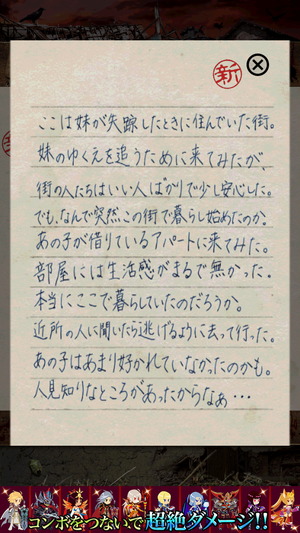 新
ここは妹が失踪したときに住んでいた街。
妹のゆくえを追うために来てみたが、
街の人たちはいい人ばかりで少し安心した。
でも、なんで突然、この街で暮らし始めたのか。
あの子が借りているアパートに来てみた。
部屋には生活感がまるで無かった。
本当にここで暮らしていたのだろうか。
近所の人に聞いたら逃げるように去って行った。
あの子はあまり好かれていなかったのかも。
人見知りなところがあったからなぁ…
コンボをつないで超絶ダメージ!!